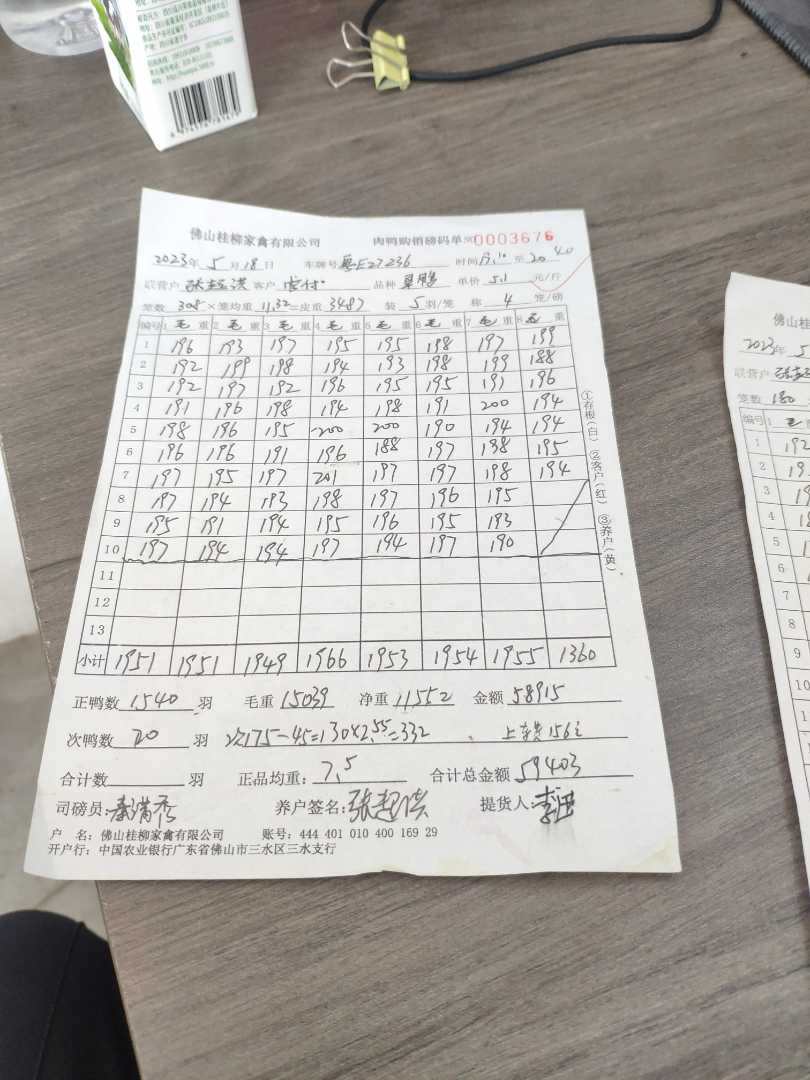 佛山桂柳家禽有限公司 肉鸭购销磅码单 NO 0003676
2023年 5月18日 车牌号 粤E27236 时间 至 20 40
联营户 张 客户 品种 单价 5.1 元/斤
笼数 308 ×笼均重 11.32 =皮重 3487 装 5 羽/笼 称 4 笼/磅
编号 1 毛 重 2 毛 重 3 毛 重 4 毛 重 5 毛 重 6 毛 重 7 毛 重 8 毛 重
1 196 193 197 195 195 198 197 199
2 192 199 198 194 193 198 199 188
3 192 197 192 196 195 195 191 196
4 191 196 198 194 198 191 200 194
5 198 196 195 200 200 190 194 194
6 196 196 191 196 188 197 198 195
7 197 195 197 201 197 197 198 194
8 197 194 193 198 197 196 195
9 195 191 194 195 196 195 193
10 197 194 194 197 194 197 190
11
12
13
小计 1951 1951 1949 1966 1953 1954 1955 1360
①存根(白) ②客户(红) ③养户(黄)
正鸭数 1540 羽 毛重 15039 净重 11552 金额 58915
次鸭数 20 羽 次175-45=130×2.55=332 上车费156元
合计数 羽 正品均重: 7.5 合计总金额 59403
司磅员: 秦满秀 养户签名: 张 提货人: 李
户 名: 佛山桂柳家禽有限公司 账号: 444 401 010 400 169 29
开户行: 中国农业银行广东省佛山市三水区三水支行
佛山
2023年 5
联营户 张
笼数 180
编号 1
1 192
2
3
4
5
6
7
8
9
10